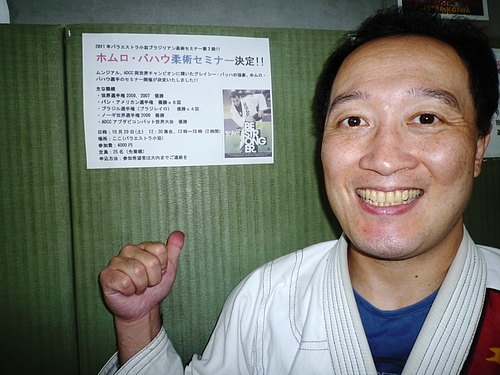 2011年パラエストラ小岩ブラジリアン柔術セミナー第2弾!!
ホムロ・バハウ柔術セミナー決定!!
ムンジアル、ADCC両世界チャンピオンに輝いたグレイシー・バッハの強豪、ホムロ・
バハウ選手のセミナー開催が決定いたしました!!
主な戦績
・世界選手権2006、2007 優勝
・パン・アメリカン選手権 優勝x6回
・ブラジル選手権(ブラジレイロ) 優勝x4回
・ノーギ世界選手権2008 優勝
・ADCCアブダビコンバット世界大会 優勝
日時:10月29日(土) 12:30集合、13時~15時(2時間)
場所:ここ(パラエストラ小岩)
参加費:4000円
定員:25名(先着順)
申込方法:参加希望者は大内までご連絡を
BE
STR
ONG
BR.